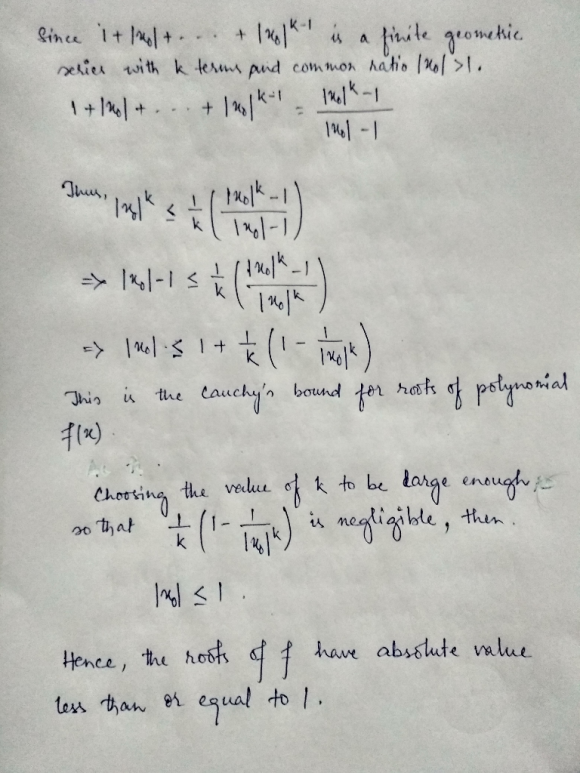 Since 1+|x₀|+ - - - + |x₀|^{k-1} is a finite geometric
series with k terms and common ratio |x₀| >1.
1+|x₀|+ - - - + |x₀|^{k-1} = \frac{|x₀|^k -1}{|x₀| -1}
Thus, |x₀|^k ≤ \frac{1}{k} ( \frac{|x₀|^k -1}{|x₀|-1} )
=> |x₀|-1 ≤ \frac{1}{k} ( \frac{|x₀|^k -1}{|x₀|^k} )
=> |x₀| ≤ 1 + \frac{1}{k} ( 1 - \frac{1}{|x₀|^k} )
This is the Cauchy's bound for roots of polynomial
f(x).
Choosing the value of k to be large enough,
so that \frac{1}{k} ( 1- \frac{1}{|x₀|^k} ) is negligible, then.
|x₀| ≤ 1.
Hence, the roots of f have absolute value
less than or equal to 1.